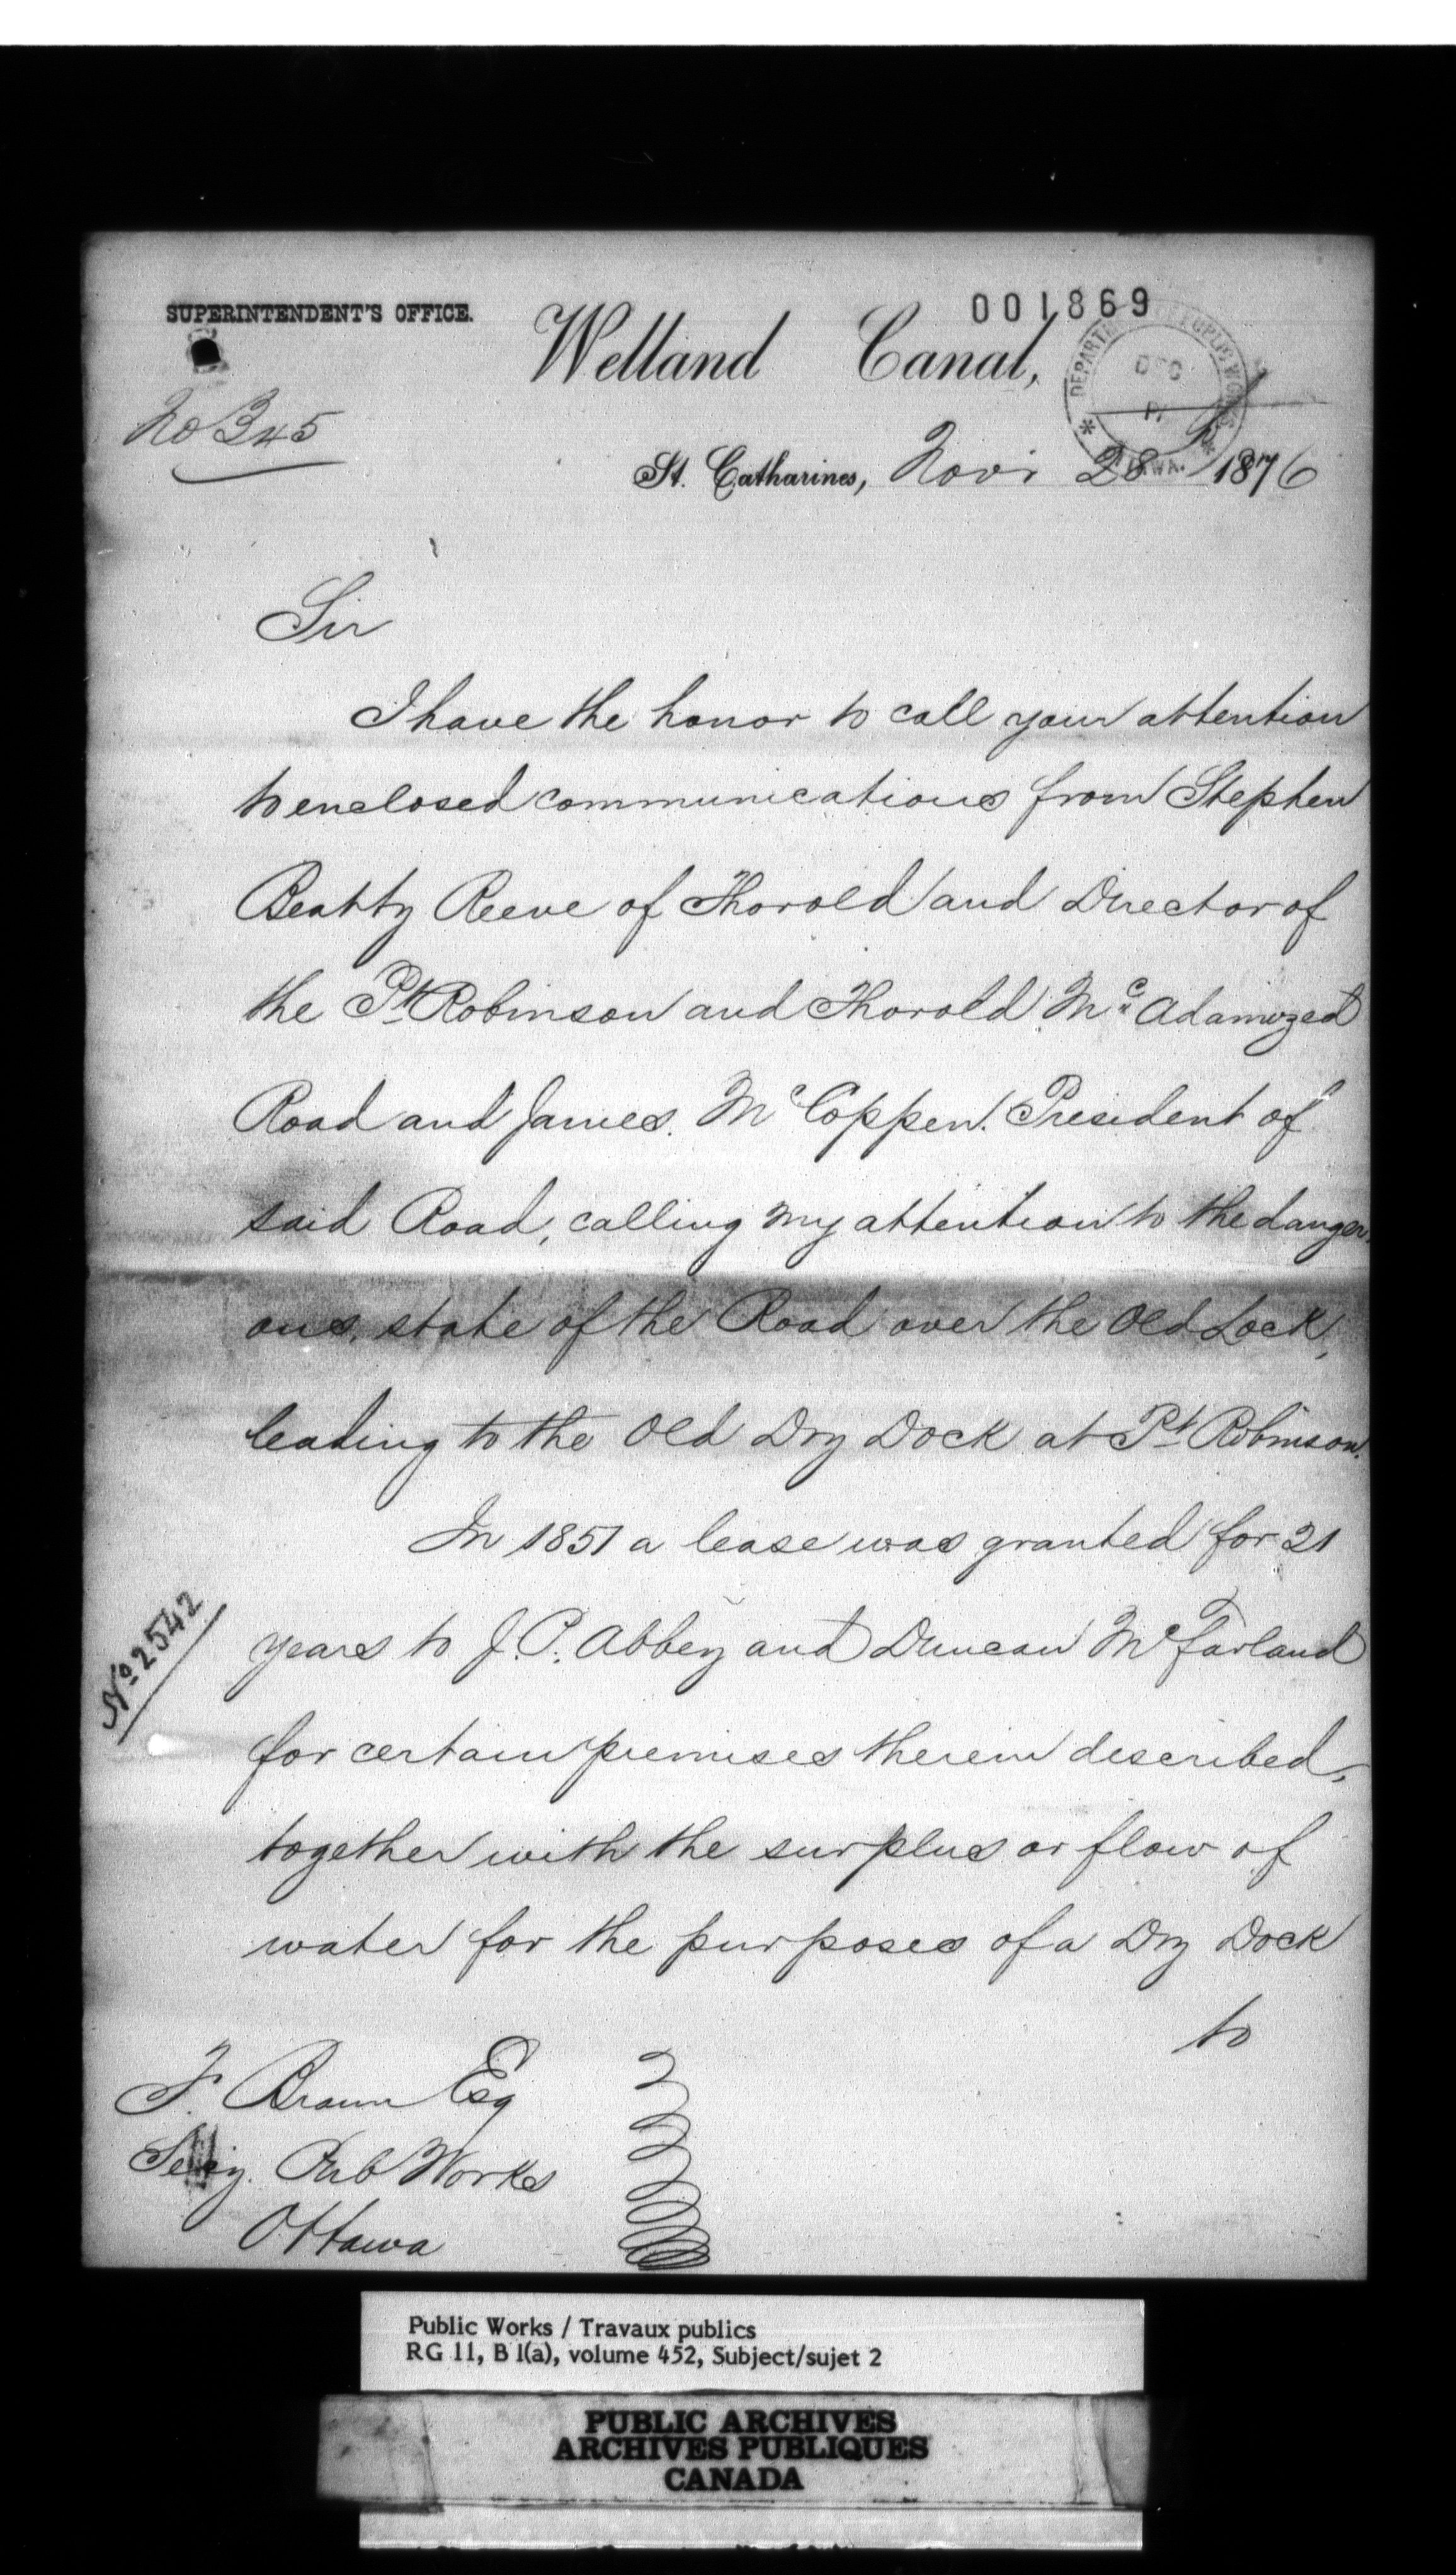 001869
SUPERINTENDENT'S OFFICE.
Welland Canal,
DEPARTMENT OF PUBLIC WORKS
DEC
OTTAWA.
No 345
St. Catharines, Novr 28 1876
Sir
I have the honor to call your attention
to enclosed communications from Stephen
Beatty Reeve of Thorold and Director of
the Pt Robinson and Thorold McAdamized
Road and James McCoppen. President of
said Road, calling my attention to the danger
ous state of the Road over the Old Lock,
leading to the Old Dry Dock at Pt Robinson.
In 1851 a lease was granted for 21
years to J. P. Abbey and Duncan McFarland
No 2542
for certain premises therein described,
together with the surplus or flow of
water for the purposes of a Dry Dock
to
F. Braun Esq
Secy. Pub Works
Ottawa
Public Works / Travaux publics
RG 11, B 1(a), volume 452, Subject/sujet 2
PUBLIC ARCHIVES
ARCHIVES PUBLIQUES
CANADA